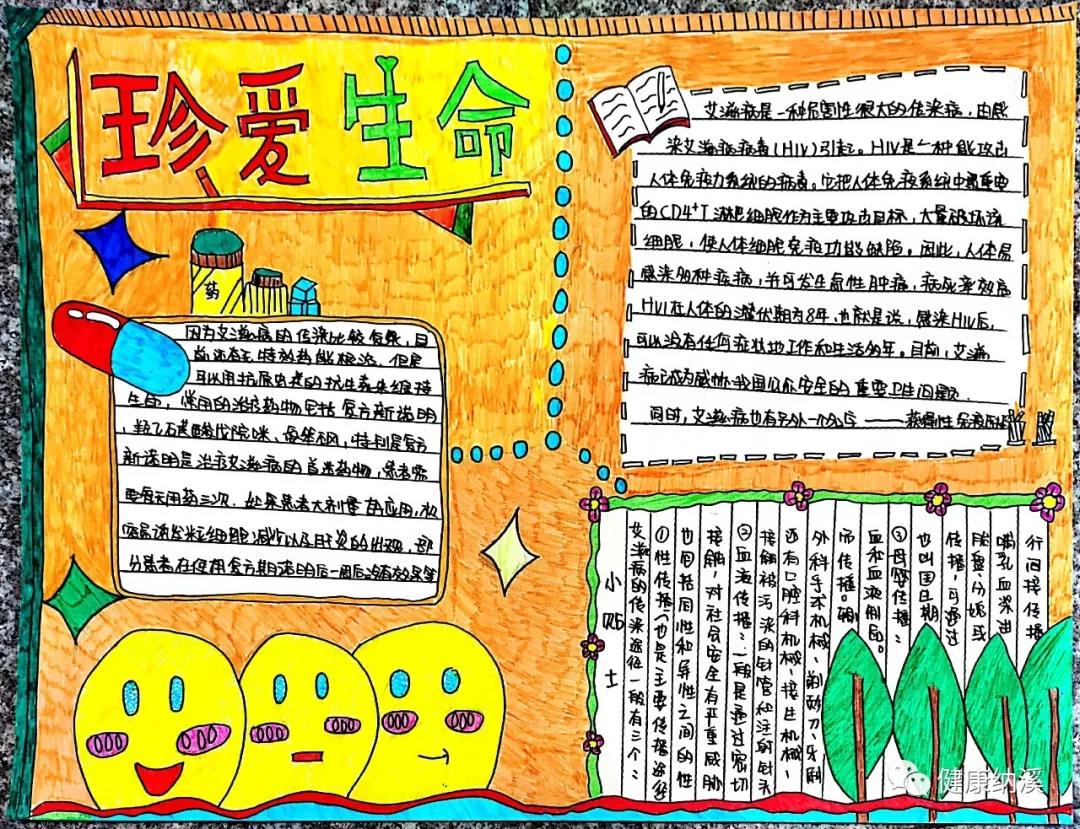 珍爱生命
药
因为艾滋病的传染比较复杂,目
前还有无特效药能根治。但是
可以用抗病毒的抗生素来维持
生命,常用的治疗药物包括复方新诺明
羟乙磺酸戊烷咪、
特别是复方
新诺明是治疗艾滋病的首选药物,患者需
要每天用药三次。如果患者大剂量的应用,
容易诱发粒细胞减少以及肝炎的出现,部
分患者在使用复方新诺明后一周后没有效果
艾滋病是一种危害性很大的传染病,由感
染艾滋病病毒(HIV)引起。HIV是一种能攻击
人体免疫力系统的病毒。它把人体免疫系统中最重要
的CD4⁺T淋巴细胞作为主要攻击目标,大量破坏该
细胞,使人体细胞免疫功能缺陷。因此,人体易
感染各种疾病,并可发生恶性肿瘤,病死率较高
HVI在人体的潜伏期为8年,也就是说,感染HIV后,
可以没有任何症状地工作和生活多年。目前,艾滋
病已成为威胁我国公众安全的重要卫生问题.
同时,艾滋病也有另外一个名字——获得性免疫
小贴士
艾滋病的传染途径一般有三个:
①性传播(也是主要传播途径
也包括同性和异性之间的性
接触,对社会安全有严重威胁
②血液传播:一般是通过密切
接触被污染的针管和注射针头
还有口腔科机械、接生机械、
外科手术机械、剃须刀、牙刷
而传播。
血和血液制品。
③母婴传播:
也叫围生期
传播,可通过
胎盘、分娩或
哺乳血染
行间接传播
健康纳溪